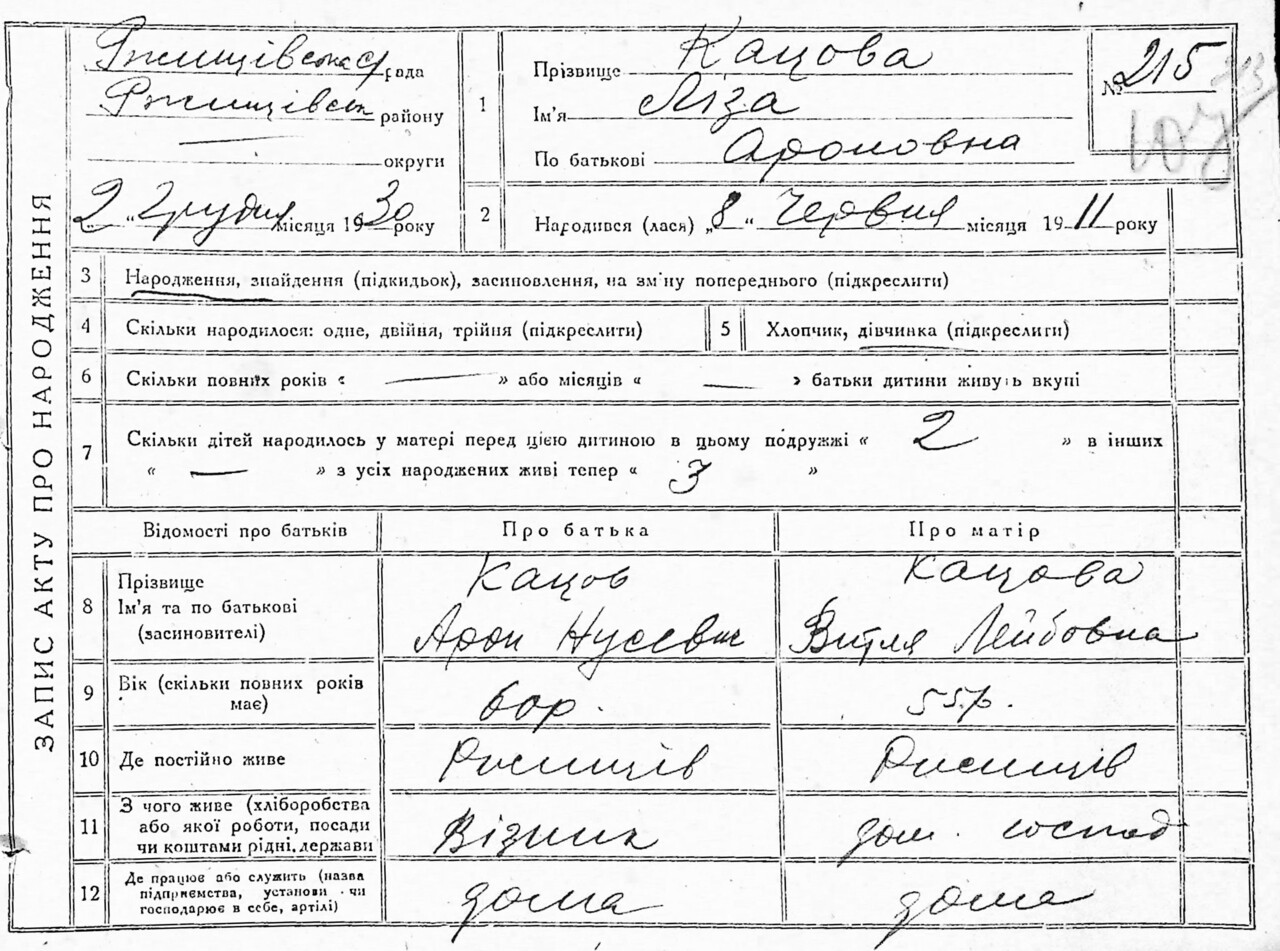 ЗАПИС АКТУ ПРО НАРОДЖЕННЯ
Ржищівська с/рада
Ржищівськ району
округи
2 „ Грудня місяця 1930 року
1
Прізвище Кацова
Ім'я Ліза
По батькові Ароновна
№ 215
107
2
Народився (лася) „8“ Червня місяця 1911 року
3 Народження, знайдення (підкидьок), засиновлення, на зміну попереднього (підкреслити)
4 Скільки народилося: одне, двійня, трійня (підкреслити)
5 Хлопчик, дівчинка (підкреслити)
6 Скільки повних років « — » або місяців « — » батьки дитини живуть вкупі
7 Скільки дітей народилось у матері перед цією дитиною в цьому подружжі « 2 » в інших
« — » з усіх народжених живі тепер « 3 »
Відомості про батьків
Про батька
Про матір
8
Прізвище
Ім'я та по батькові
(засиновителі)
Кацов
Арон Нусевич
Кацова
Витля Лейбовна
9
Вік (скільки повних років
має)
60р.
55р.
10 Де постійно живе
Ржищів
Ржищів
11
З чого живе (хліборобства
або якої роботи, посади
чи коштами рідні, держави
Візник
дом. господ
12
Де працює або служить (назва
підприємства, установи чи
господарює в себе, артілі)
дома
дома